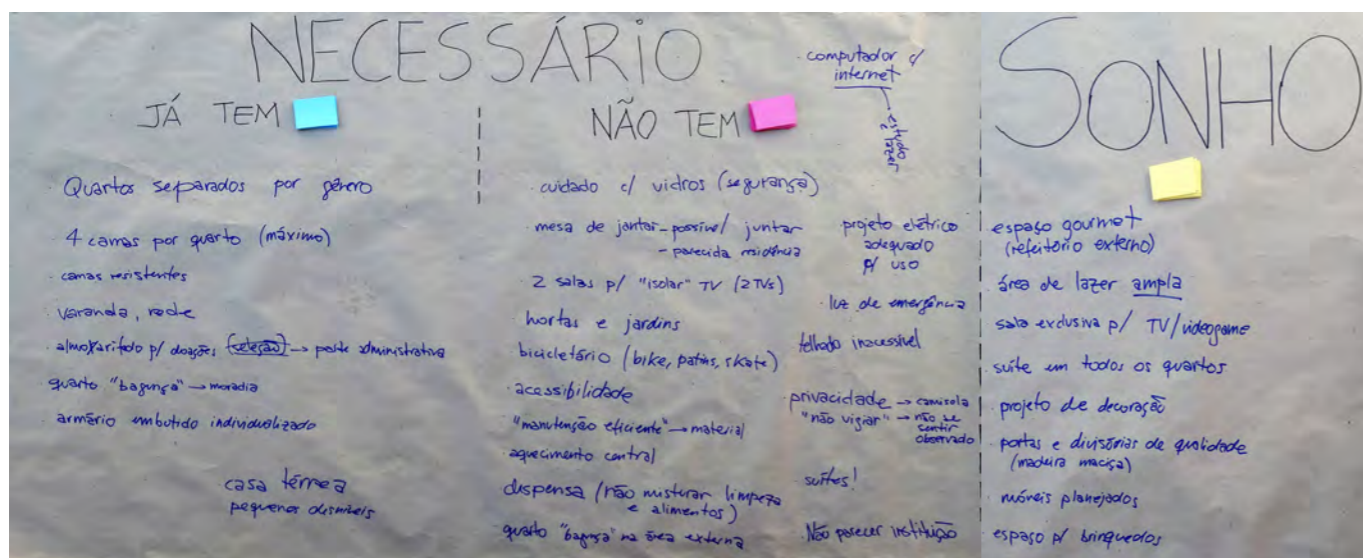 NECESSÁRIO
JÁ TEM
Quartos separados por gênero
4 camas por quarto (máximo)
camas resistentes
varanda, rede
almoxarifado p/ doações (seleção) → parte administrativa
quarto "bagunça" → moradia
armário embutido individualizado
casa térrea
pequenos desníveis
NÃO TEM
cuidado c/ vidros (segurança)
mesa de jantar - possível juntar
- parecida residência
2 salas p/ "isolar" TV (2 TVs)
hortas e jardins
bicicletário (bike, patins, skate)
acessibilidade
"manutenção eficiente" → material
aquecimento central
dispensa (não misturar limpeza
e alimentos)
quarto "bagunça" na área externa
computador c/
internet
estudo
e lazer
projeto elétrico
adequado
p/ uso
luz de emergência
telhado inacessível
privacidade → camisola
"não vigiar" → não se
sentir
observado
suítes!
Não parecer instituição
SONHO
espaço gourmet
(refeitório externo)
área de lazer ampla
sala exclusiva p/ TV/videogame
suíte em todos os quartos
projeto de decoração
portas e divisórias de qualidade
(madeira maciça)
móveis planejados
espaço p/ brinquedos